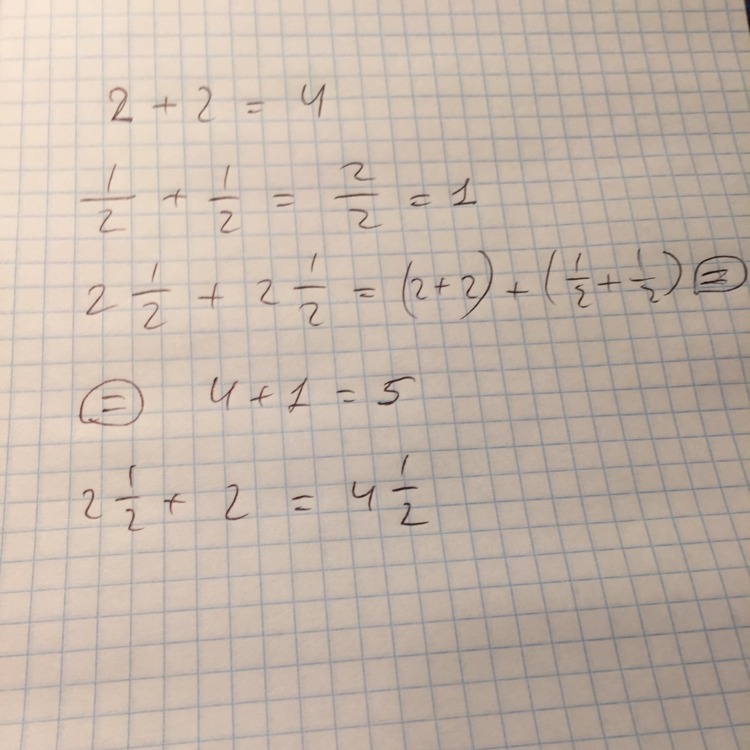 2 + 2 = 4
1/2 + 1/2 = 2/2 = 1
2 1/2 + 2 1/2 = (2+2) + (1/2 + 1/2) =
= 4 + 1 = 5
2 1/2 + 2 = 4 1/2